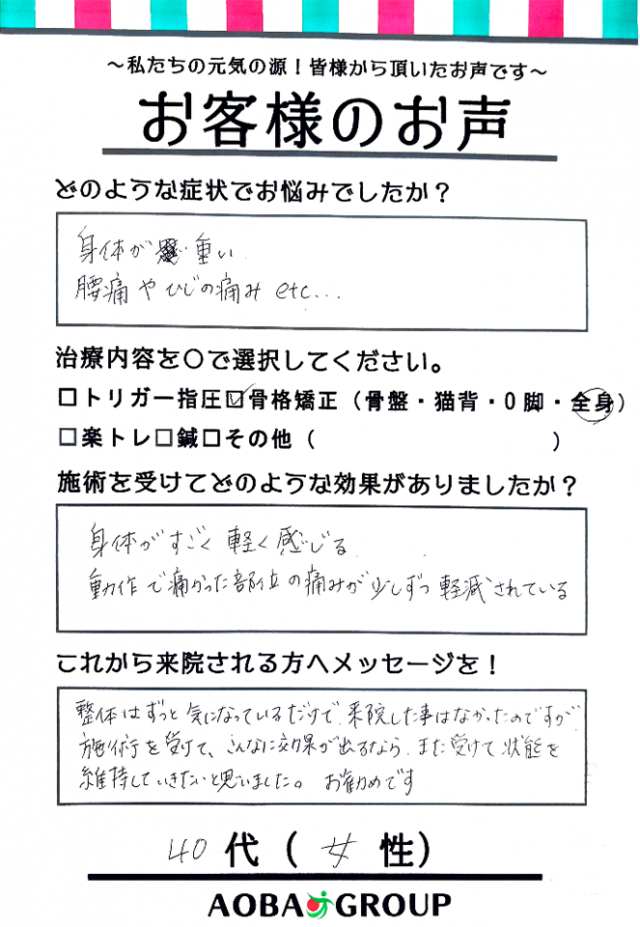 ～私たちの元気の源！皆様から頂いたお声です～
お客様のお声
どのような症状でお悩みでしたか？
身体が 重い
腰痛 や ひじの痛み etc...
治療内容を〇で選択してください。
□トリガー指圧☑骨格矯正（骨盤・猫背・O脚・全身）
□楽トレ□鍼□その他（　　　　　　　　）
施術を受けてどのような効果がありましたか？
身体がすごく 軽く感じる
動作で痛かった部位の痛みが少しずつ軽減されている
これから来院される方へメッセージを！
整体はずっと気になっているだけで、来院した事はなかったのですが
施術を受けて、こんなに効果が出るなら、また受けて状態を
維持していきたいと思いました。 お勧めです
40 代（ 女 性）
AOBA GROUP